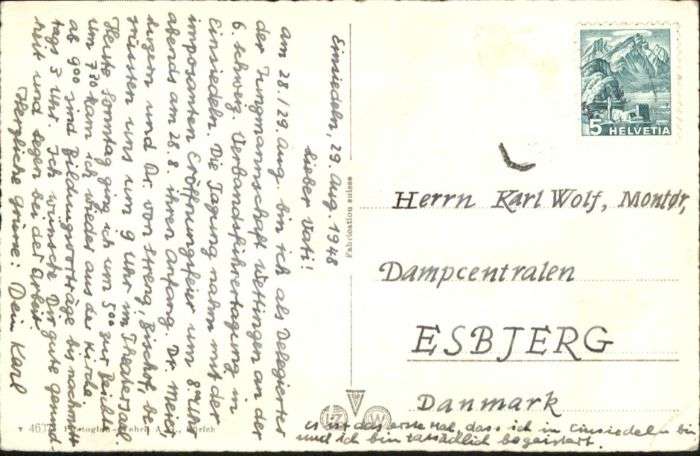 Einsiedeln, 29. Aug. 1948
Lieber Vati!
Am 28./29. Aug. bin ich als Delegierter
der Jungmannschaft Wettingen an der
6. schweiz. Verbandsführertagung in
Einsiedeln. Die Tagung nahm mit der
imposanten Eröffnungsfeier um 8 Uhr
abends am 28.8. ihren Anfang. Dr. Meier,
Luzern und Dr. von Streng, Bischof, be-
grüssten uns um 9 Uhr im Theatersaal.
Heute Sonntag ging ich um 5⁰⁰ zur Beichte
um 7³⁰ kam ich wieder aus der Kirche
ab 9⁰⁰ sind Bildungsvorträge bis nachmit-
tags 3 Uhr. Ich wünsche Dir gute Gesund-
heit und Segen bei der Arbeit
Herzliche Grüsse: Dein Karl
Fabrication suisse
5 HELVETIA
Herrn Karl Wolf, Montør,
Dampcentralen
ESBJERG
Danmark
Es ist das erste Mal, dass ich in Einsiedeln bin
und ich bin tatsächlich begeistert.